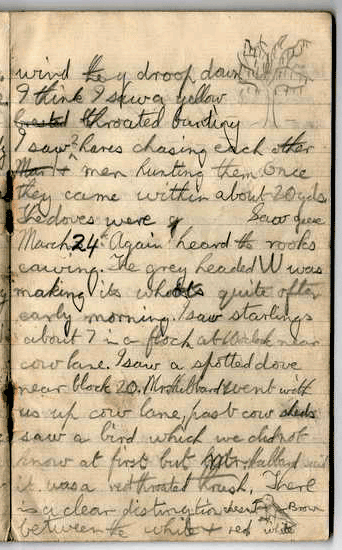 wind they droop down
I think I saw a yellow
breasted throated bunting
I saw 2 hares chasing each other
Man + men hunting them. Once
they came within about 20 yds.
The doves were g Saw geese
March 24th Again heard the rooks
cawing. The grey headed W was
making its whoots quite often
early morning. I saw starlings
about 7 in a flock at near
cow lane. I saw a spotted dove
near block 20. Mr Hibbard went with
us up cow lane, past cow sheds
saw a bird which we did not
know at first but Mr Hubbard said
it was a redthroated thrush. There
is a clear distinction Brown
between the white + red white